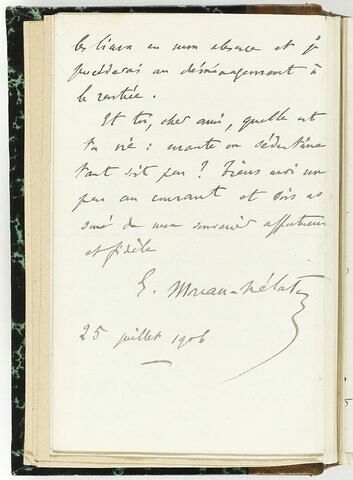 les lieux en mon absence et je
procéderai au déménagement à
la rentrée.
Et toi, cher ami, quelle est
ta vie : errante ou sédentaire
tant soit peu ? Tiens moi un
peu au courant et sois as
suré de mon souvenir affectueux
et fidèle
E. Moreau-Nélaton
25 juillet 1906